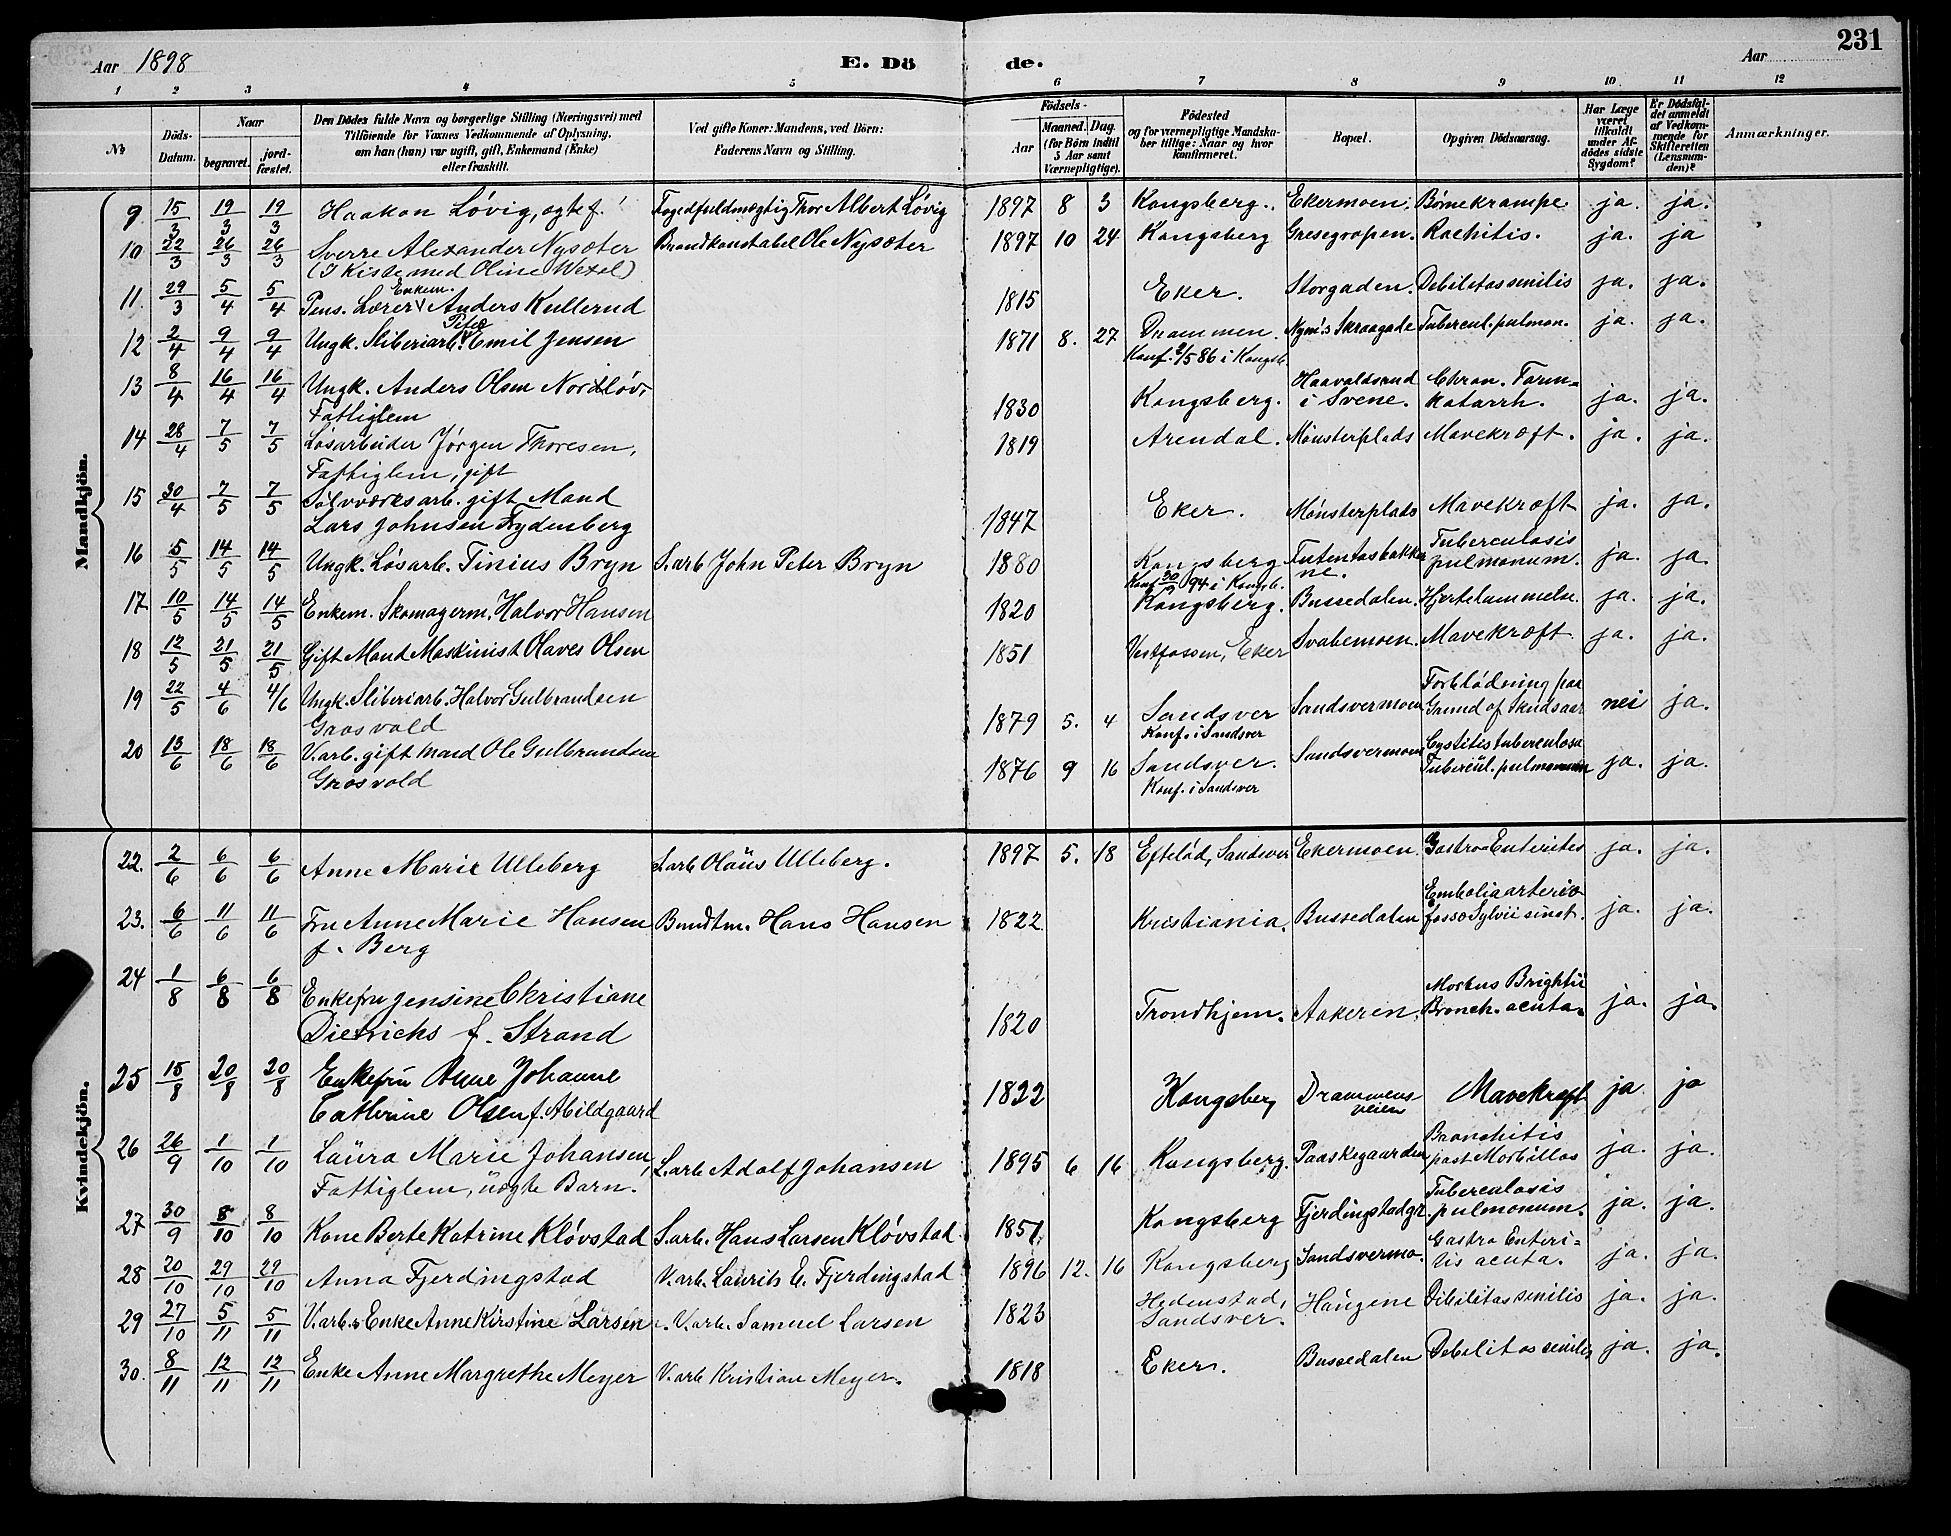 Aar 1898 E. Dö de. Aar 231
1 2 3 4 5 6 7 8 9 10 11 12
No Döds-Datum. Naar begravet. jord-fæstet. Den Dödes fulde Navn og borgerlige Stilling (Næringsvei) med Tilföiende for Voxnes Vedkommende af Oplysning, om han (hun) var ugift, gift, Enkemand (Enke) eller fraskilt. Ved gifte Koner: Mandens, ved Börn: Faderens Navn og Stilling. Födsels- Aar Maaned. Dag. (for Börn indtil 5 Aar samt Værnepligtige). Födested og for værnepligtige Mandska-ber tillige: Naar og hvor konfirmeret. Bopæl. Opgiven Dödsaarsag. Har Læge været tilkaldt under Af-dödes sidste Sygdom? Er Dödsfal-det anmeldt af Vedkom-mende for Skifteretten (Lensman-den)? Anmærkninger.
Mandkjön.
9. 15/3 19/3 19/3 Haakon Lövig, ægtef. Fogedfuldmægtig Thor Albert Lövig 1897 8 3 Kongsberg. Ekermoen. Börnekrampe ja. ja.
10 22/3 26/3 26/3 Sverre Alexander Nysæter Brandkonstabel Ole Nysæter 1897 10 24 Kongsberg Gresegropen. Rachitis. ja. ja
(I Kiste med Oline Wexel)
11. 29/3 5/4 5/4 Pens. Lærer Enkem. Anders Kullerud 1815 Eker. Storgaden. Debilitas senilis ja. ja.
12 2/4 9/4 9/4 Ungk. Sliberiarb. Emil Jensen 1871 8. 27 Drammen. Nymos Skraagade Tubercul. pulmon. ja. ja.
Konf. 2/5 86 i Kongsb.
13 8/4 16/4 16/4 Ungk. Anders Olsen Nordlöv, 1830 Kongsberg. Haavaldsrud i Svene. Chron. Tarm=katarrh. ja. ja.
Fattiglem
14 28/4 7/5 7/5 Lösarbeider Jörgen Thoresen, 1819 Arendal. Mönsterplads Mavekræft. ja. ja.
Fattiglem, gift
15 30/4 7/5 7/5 Sölvværksarb. gift Mand
Lars Johnsen Frydenberg 1847 Eker. Mönsterplads Mavekræft ja. ja.
16 5/5 14/5 14/5 Ungk. Lösarb. Tinius Bryn S.arb John Peter Bryn 1880 Kongsberg Futentasbakkene. Tuberculosis pulmonum. ja. ja.
Konf. 94 i Kongsb.
17 10/5 14/5 14/5 Enkem. Skomagerm. Halvor Hansen 1820 Kongsberg. Bussedalen. Hjertelammelse. ja. ja.
18 12/5 21/5 21/5 Gift Mand Maskinist Olaves Olsen 1851 Vestfossen, Eker Svabemoen. Mavekræft ja. ja.
19 22/5 4/6 4/6 Ungk. Sliberiarb. Halvor Gulbrandsen 1879 5. 4 Sandsver Sandsvermoen Forblödning paa Grund af Skudsaar nei ja.
Graasvold Konf. i Sandsver
20 13/6 18/6 18/6 V.arb. gift mand Ole Gulbrandsen 1876 9 16 Sandsver. Sandsvermoen Cystitis tuberculosa Tubercul. pulmonum ja. ja.
Graasvold Konf. i Sandsver
Kvindekjön.
22. 2/6 6/6 6/6 Anne Marie Ulleberg L.arb Olaüs Ulleberg. 1897 5. 18 Efteløt, Sandsver Ekermoen. Gastro-Enterites ja. ja.
23. 6/6 11/6 11/6 Fru Anne Marie Hansen Bundtm. Hans Hansen 1822 Kristiania. Bussedalen Embolia arteriæ fossæ Sylvii sinst. ja. ja.
f. Berg
24 1/8 6/8 6/8 Enkefru Jensine Christiane
Dietrichs f. Strand 1820 Trondhjem. Aakeren. Morbus Brightii Bronch. acuta. ja. ja.
25 15/8 20/8 20/8 Enkefrü Anne Johanne
Cathrine Olsen f. Abildgaard 1822 Kongsberg Drammensveien Mavekræft ja ja
26 26/9 1/10 1/10 Laüra Marie Johansen, L.arb Adolf Johansen 1895 6 16 Kongsberg. Paaskegaarden Bronchitis post Morbillos ja. ja.
Fattiglem, üægte Barn.
27 30/9 8/10 8/10 Kone Berte Katrine Klövstad S.arb. Hans Larsen Klövstad. 1851 Kongsberg Fjerdingstadgr. Tuberculosis pulmonum. ja. ja.
28 20/10 29/10 29/10 Anna Fjerdingstad V.arb. Laurits E. Fjerdingstad 1896 12. 16 Kongsberg Sandsvermo. Gastro Enteri=tis acuta. ja. ja.
29 27/10 5/11 5/11 V.arb.s Enke Anne Kirstine Larsen V.arb. Samuel Larsen 1823 Hedenstad, Sandsver. Haugene Debilitas senilis ja. ja.
30. 8/11 12/11 12/11 Enke Anne Margrethe Meyer V.arb Kristian Meyer. 1818 Eker. Bussedalen Debilitas senilis ja. ja.